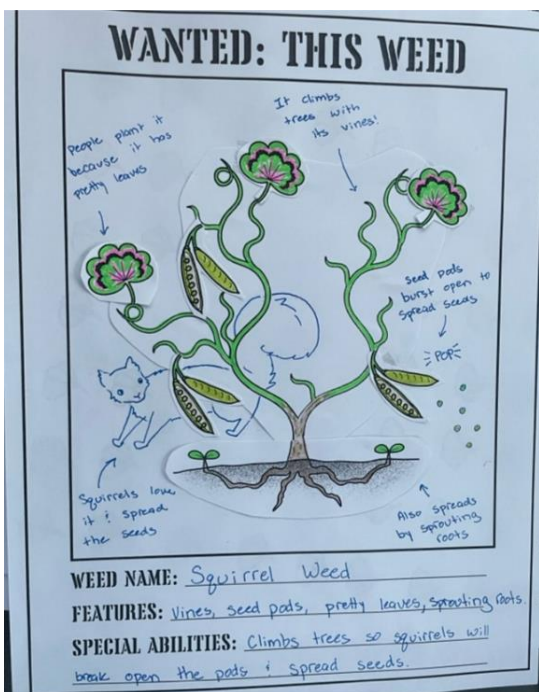 WANTED: THIS WEED
people plant it
because it has
pretty leaves
It climbs
trees with
its vines!
seed pods
burst open to
spread seeds
POP
Squirrels love
it & spread
the seeds
Also spreads
by sprouting
roots
WEED NAME: Squirrel Weed
FEATURES: Vines, seed pods, pretty leaves, sprouting roots.
SPECIAL ABILITIES: Climbs trees so squirrels will
break open the pods & spread seeds.